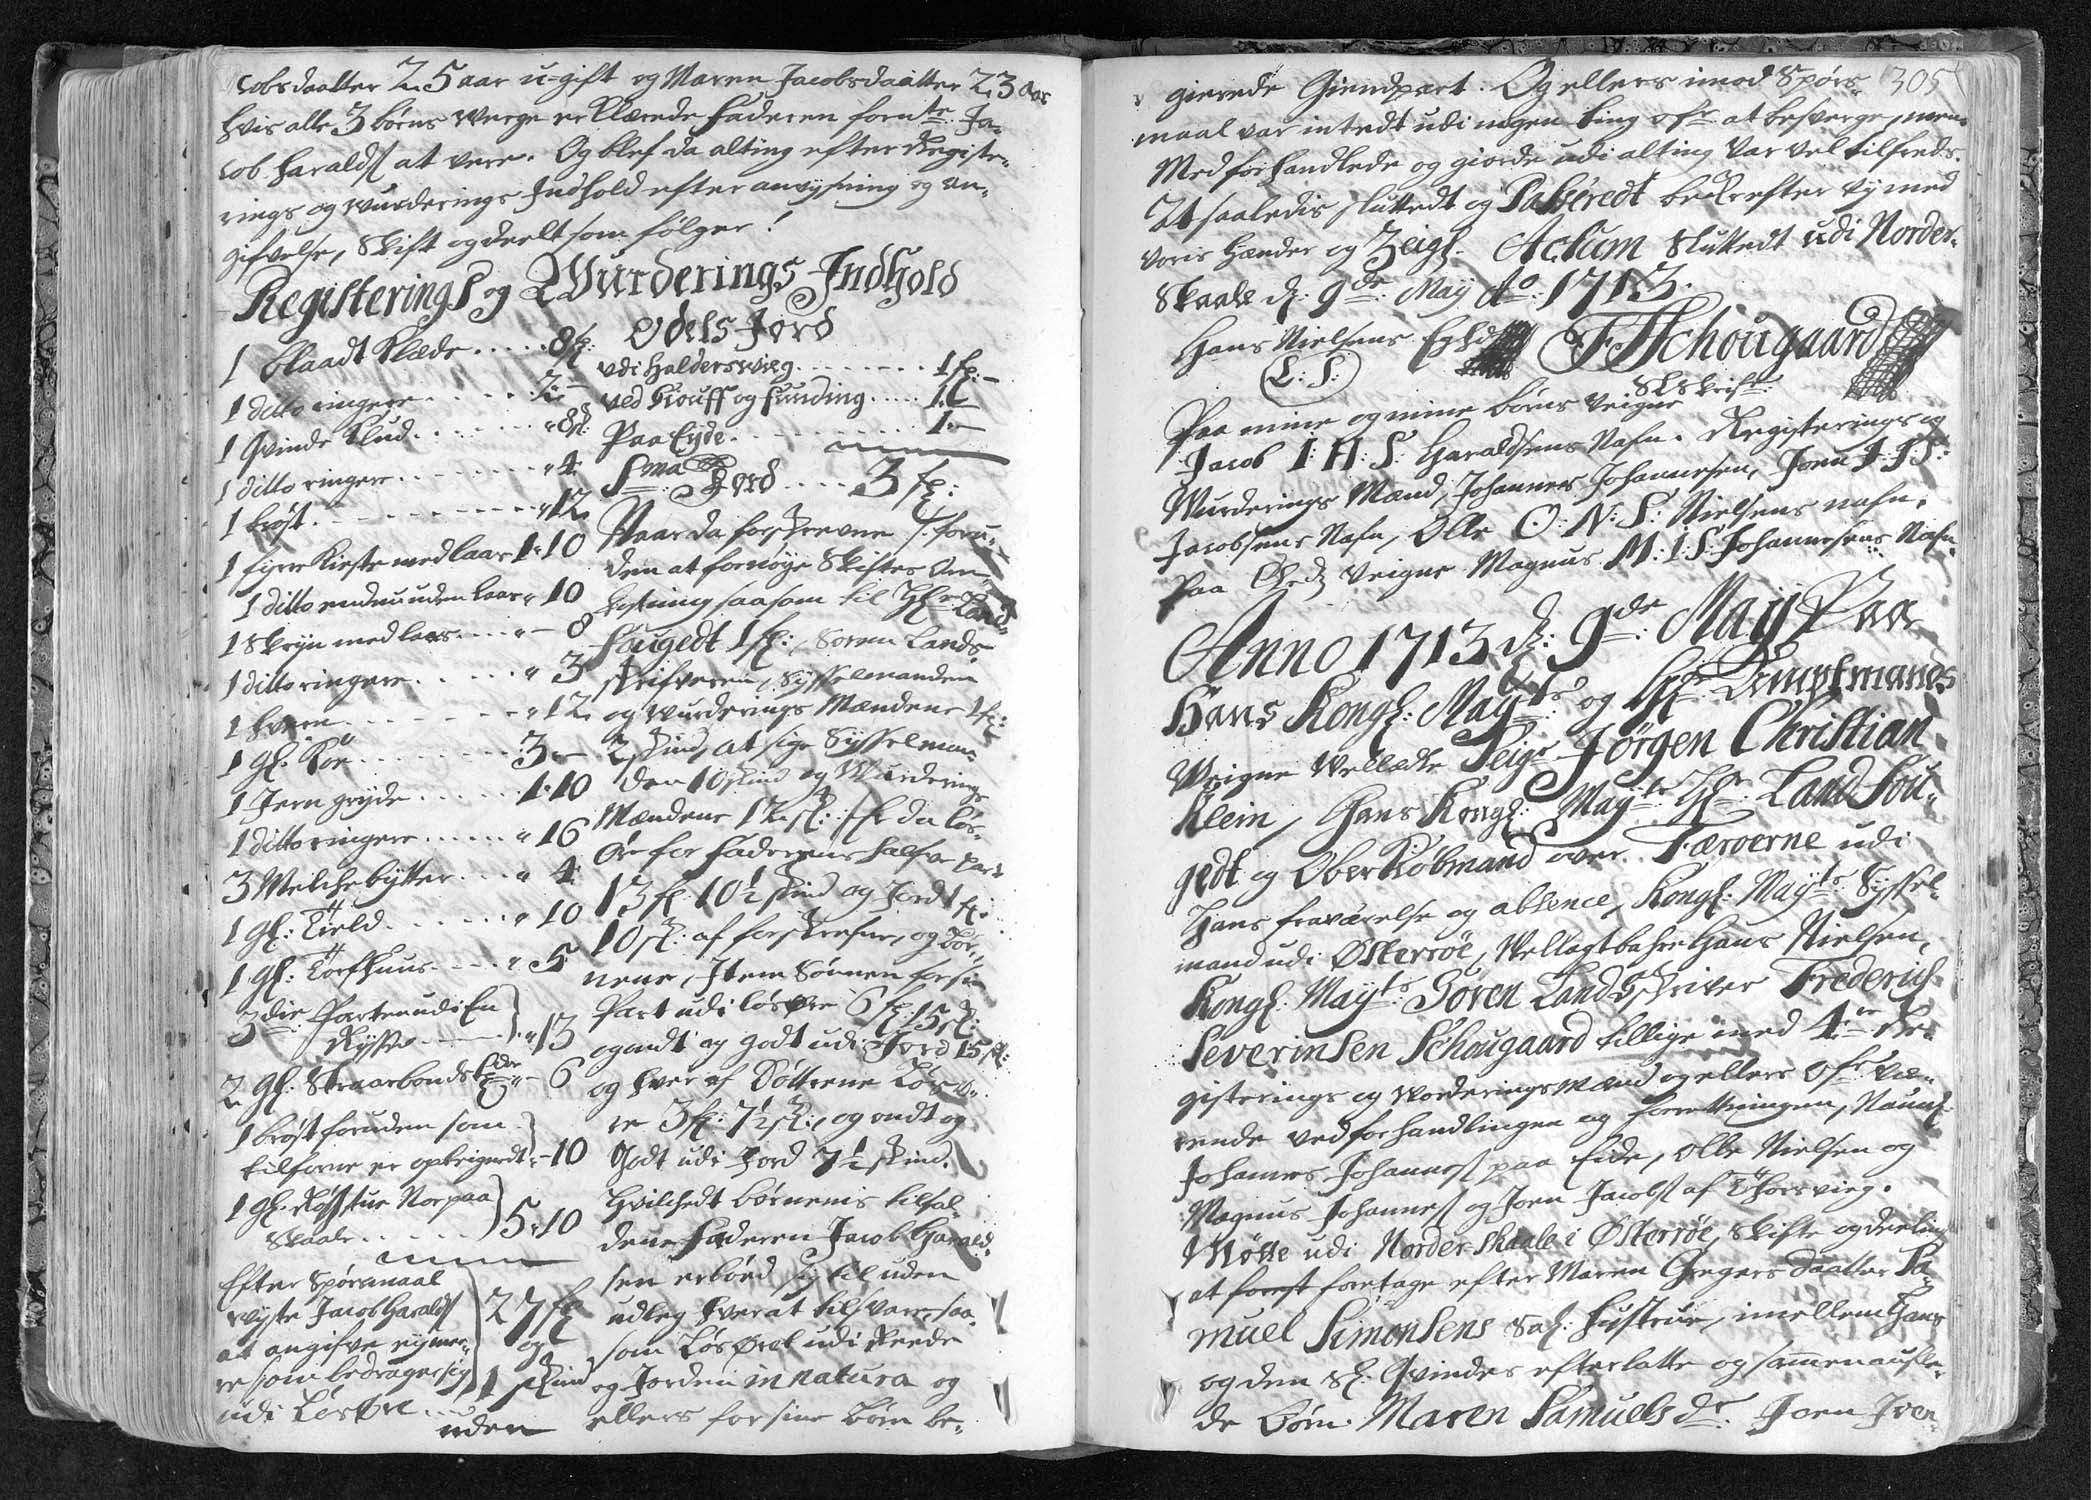 cobsdaatter 25 aar u-gift og Maren Jacobsdaatter 23 aar
hvis alle 3 børns werge erklærede faderen fornte Ja-
cob Haralds at vere. Og blef da alting efter Registe-
rings og wurderings Indhold efter anvijsning og an-
gifvelse, Skift og deelt som følger!
Registerings og Wurderings Indhold
1 blaadt klæde ..... 8 sk:
1 ditto ringere ..... 7 -
1 qvinde klud ..... " 8 sk:
1 ditto ringere ..... " 4
1 brøst ..... " 12
1 fyrre kieste med laas 1 " 10
1 ditto endnu uden laas " 10
1 Skryn med laas .... " - 8
1 ditto ringere ..... " 3
1 hvern ..... " 12
1 gl: koe ..... 3 " -
1 Jern gryde ..... 1 " 10
1 ditto ringere ..... " 16
3 Melchebytter ... " 4
1 gl: Tield ..... " 10
1 gl: Torfhuus .... " 5
3die Parten udi En
" 13
2 gl: 6
1 brøst foruden som
tilforne er opteignedt " - 10
1 gl: Røgstue Norpaa
Skaale ..... 5 " 10
Efter Spørsmaal
viste Jacob Haralds
at angifve eij mee-
re som bedrager sig
udi Løsøre ...
27 fl
og
1 skind
uden
Odels Jord
udi Haldersvieg ........ 1 fl: -
ved Kiouff og Funding ..... 1 -
Paa Eyde ........ 1 -
Sma Jord .... 3 fl:
Naar da forskrevne foru-
den at fornøye Skiftes Om-
kostning saasom til Hr Land-
fougedt 1 fl:, Soren Lands-
skrifveren, Sysselmanden
og wurderings Mændene 1 fl:
2 skind, at sige Sysselman-
den 10 skind og Wurderings
Mændene 12 sk: Er da løs-
øre for faderens halfve part
13 fl: 10½ skind og Jord 1 fl:
10 sk: af forskrefne, og bør-
nene, Item Sønnen for sin
Part udi løsøre 6 fl: 15 sk:
og ondt og godt udi Jord 15 sk:
og hver af Døttrene Løsø-
re 3 fl: 7½ sk:, og ondt og
Godt udi Jord 7½ skind.
Hvilchedt børnenis tilfal-
dene Faderen Jacob Harald-
sen erbød sig til uden
udleg hver at tilsvare, saa-
som Løsøret udi Reede
og Jorden in natura og
ellers for sine børn be-
305
gierede Giendpart. Og ellers imod Spørs-
maal var intedt udi nogen ting ofr at besverge, men
Med forhandlede og giorde udi alting var vel tilfreds.
At saaledis sluttedt og Passeredt bekrefter vy med
voris Hænder og Zeigl. Actum sluttedt udi Norder-
Skaale d: 9de May Ao: 1713.
Hans Nielsens
F S Schougaard
L: S:
SLskrifr.
Paa mine og mine børns veigne
Jacob I: H: S: Haraldsens Nafn. Registerings og
Wurderings Mænd, Johannes Johannesen, Joen I: I: S:
Jacobsens Nafn, Olle O: N: S: Nielsens nafn.
Paa Eheds veigne Magnus M: I: S: Johannesens Nafn
Anno 1713 d: 9de May Paa
Hans Kongl: Mayts og Hr: Amptmands
Weigne Welædle Seigr Jörgen Christian
Klein, Hans Kongl: Mayts Hr: Land Fou-
gedt og Ober Kiøbmand over Færoerne udi
Hans fraværelse og absence, Kongl: Mayts Syssel-
mand udi Østerøe, Wellagtbahre Hans Nielsen,
Kongl: Mayts Soren Landskriver Frederich
Severinsen Schougaard tillige med 4re Re-
gisterings og Worderings Mænd og ellers ofr væ-
rende ved forhandlingen og forettningen, Naunl:
Johannes Johanness paa Eide, Olle Nielsen og
Magnus Johanness og Joen Jacobs af Thorsvieg.
Møtte udi Norder Skaale i Østerøe, Skifte og deeling
at foretage efter Maren Gregers daatter Sa-
muel Simonsens Sal: Hustrue, imellem Hans
og den Sl: Qvindes efterlatte og sammenaufle-
de børn. Maren Samuels dr. Joen Iver-